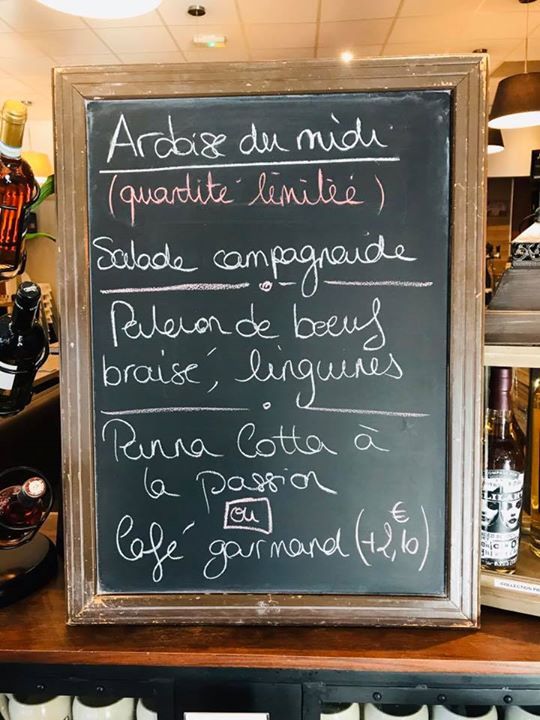 Ardoise du midi
(quantité limitée)
Salade campagnarde
Paleron de boeuf
braisé, linguines
Panna Cotta à
la passion
ou
Café gourmand (+2,10€)